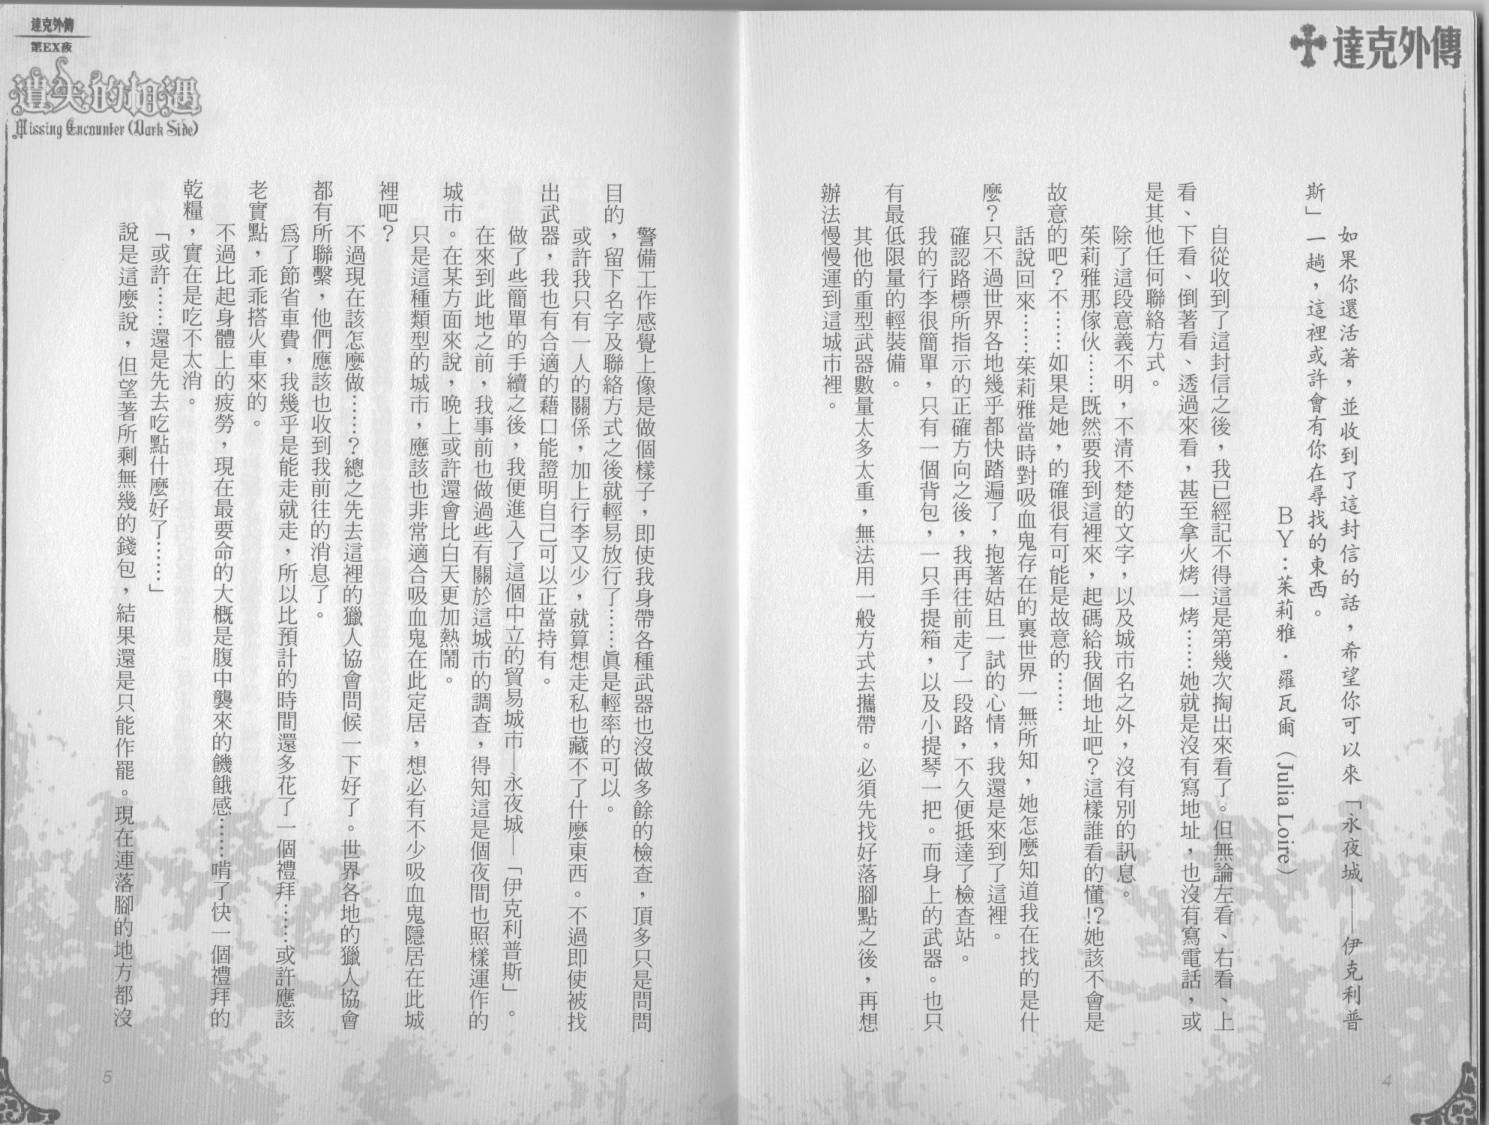 達克外傳
如果你還活著，並收到了這封信的話，希望你可以來「永夜城——伊克利普
斯」一趟，這裡或許會有你在尋找的東西。
ＢＹ：茱莉雅．羅瓦爾（Julia Loire）
自從收到了這封信之後，我已經記不得這是第幾次掏出來看了。但無論左看、右看、上
看、下看、倒著看、透過來看，甚至拿火烤一烤……她就是沒有寫地址，也沒有寫電話，或
是其他任何聯絡方式。
除了這段意義不明，不清不楚的文字，以及城市名之外，沒有別的訊息。
茱莉雅那傢伙……既然要我到這裡來，起碼給我個地址吧？這樣誰看的懂!?她該不會是
故意的吧？不……如果是她，的確很有可能是故意的……
話說回來……茱莉雅當時對吸血鬼存在的裏世界一無所知，她怎麼知道我在找的是什
麼？只不過世界各地幾乎都快踏遍了，抱著姑且一試的心情，我還是來到了這裡。
確認路標所指示的正確方向之後，我再往前走了一段路，不久便抵達了檢查站。
我的行李很簡單，只有一個背包，一只手提箱，以及小提琴一把。而身上的武器。也只
有最低限量的輕裝備。
其他的重型武器數量太多太重，無法用一般方式去攜帶。必須先找好落腳點之後，再想
辦法慢慢運到這城市裡。
4
達克外傳
第EX夜
遺失的相遇
Missing Encounter (Dark Side)
警備工作感覺上像是做個樣子，即使我身帶各種武器也沒做多餘的檢查，頂多只是問問
目的，留下名字及聯絡方式之後就輕易放行了……真是輕率的可以。
或許我只有一人的關係，加上行李又少，就算想走私也藏不了什麼東西。不過即使被找
出武器，我也有合適的藉口能證明自己可以正當持有。
做了些簡單的手續之後，我便進入了這個中立的貿易城市—永夜城—「伊克利普斯」。
在來到此地之前，我事前也做過些有關於這城市的調查，得知這是個夜間也照樣運作的
城市。在某方面來說，晚上或許還會比白天更加熱鬧。
只是這種類型的城市，應該也非常適合吸血鬼在此定居，想必有不少吸血鬼隱居在此城
裡吧？
不過現在該怎麼做……？總之先去這裡的獵人協會問候一下好了。世界各地的獵人協會
都有所聯繫，他們應該也收到我前往的消息了。
為了節省車費，我幾乎是能走就走，所以比預計的時間還多花了一個禮拜……或許應該
老實點，乖乖搭火車來的。
不過比起身體上的疲勞，現在最要命的大概是腹中襲來的饑餓感……啃了快一個禮拜的
乾糧，實在是吃不太消。
「或許……還是先去吃點什麼好了……」
說是這麼說，但望著所剩無幾的錢包，結果還是只能作罷。現在連落腳的地方都沒
5